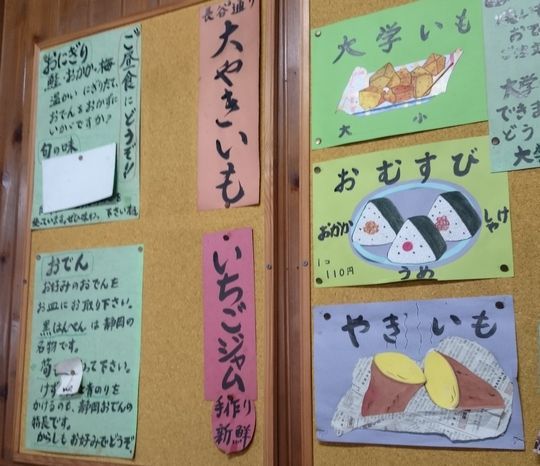 ご昼食にどうぞ!!
おにぎり
鮭、おかか、梅
温かいにぎりたて、
おでんをおかずに
いかがですか？
旬の味
使っています。ぜひ味わって下さいませ
おでん
お好みのおでんを
お皿にお取り下さい。
黒はんぺんは静岡の
名物です。
って下さい。
けず
青のりを
かけるのも、静岡おでんの
特長です。
からしもお好みでどうぞ。
長谷通り
大やきいも
いちごジャム
手作り
新鮮
大学いも
大 小
おむすび
おかか
しゃけ
うめ
1コ
110円
やきいも
おで
ご注文
大学
できま
どう
大学